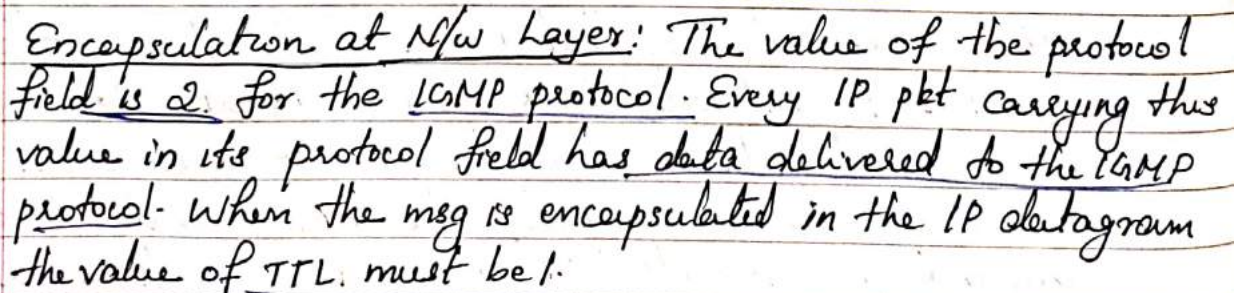 Encapsulation at N/w Layer: The value of the protocol
field is 2. for the IGMP protocol. Every IP pkt carrying this
value in its protocol field has data delivered to the IGMP
protocol. When the msg is encapsulated in the IP datagram
the value of TTL. must be 1.